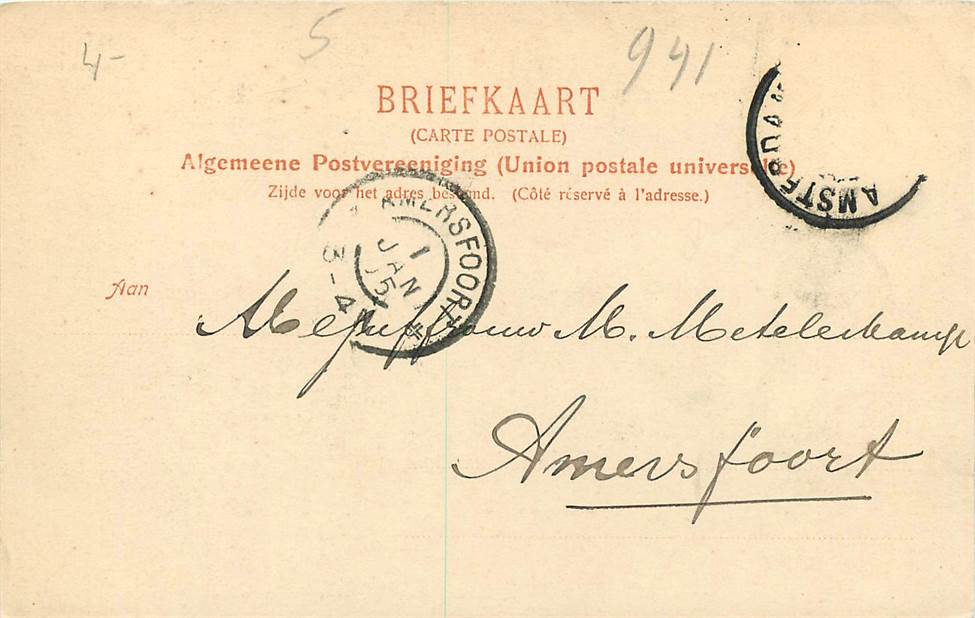 4-
5
941
BRIEFKAART
(CARTE POSTALE)
Algemeene Postvereeniging (Union postale universelle)
Zijde voor het adres bestemd. (Côté réservé à l'adresse.)
AMSTERDAM
AMERSFOORT
1
JAN
05
3-4
Aan
Mejuffrouw M. Metelerkamp
Amersfoort